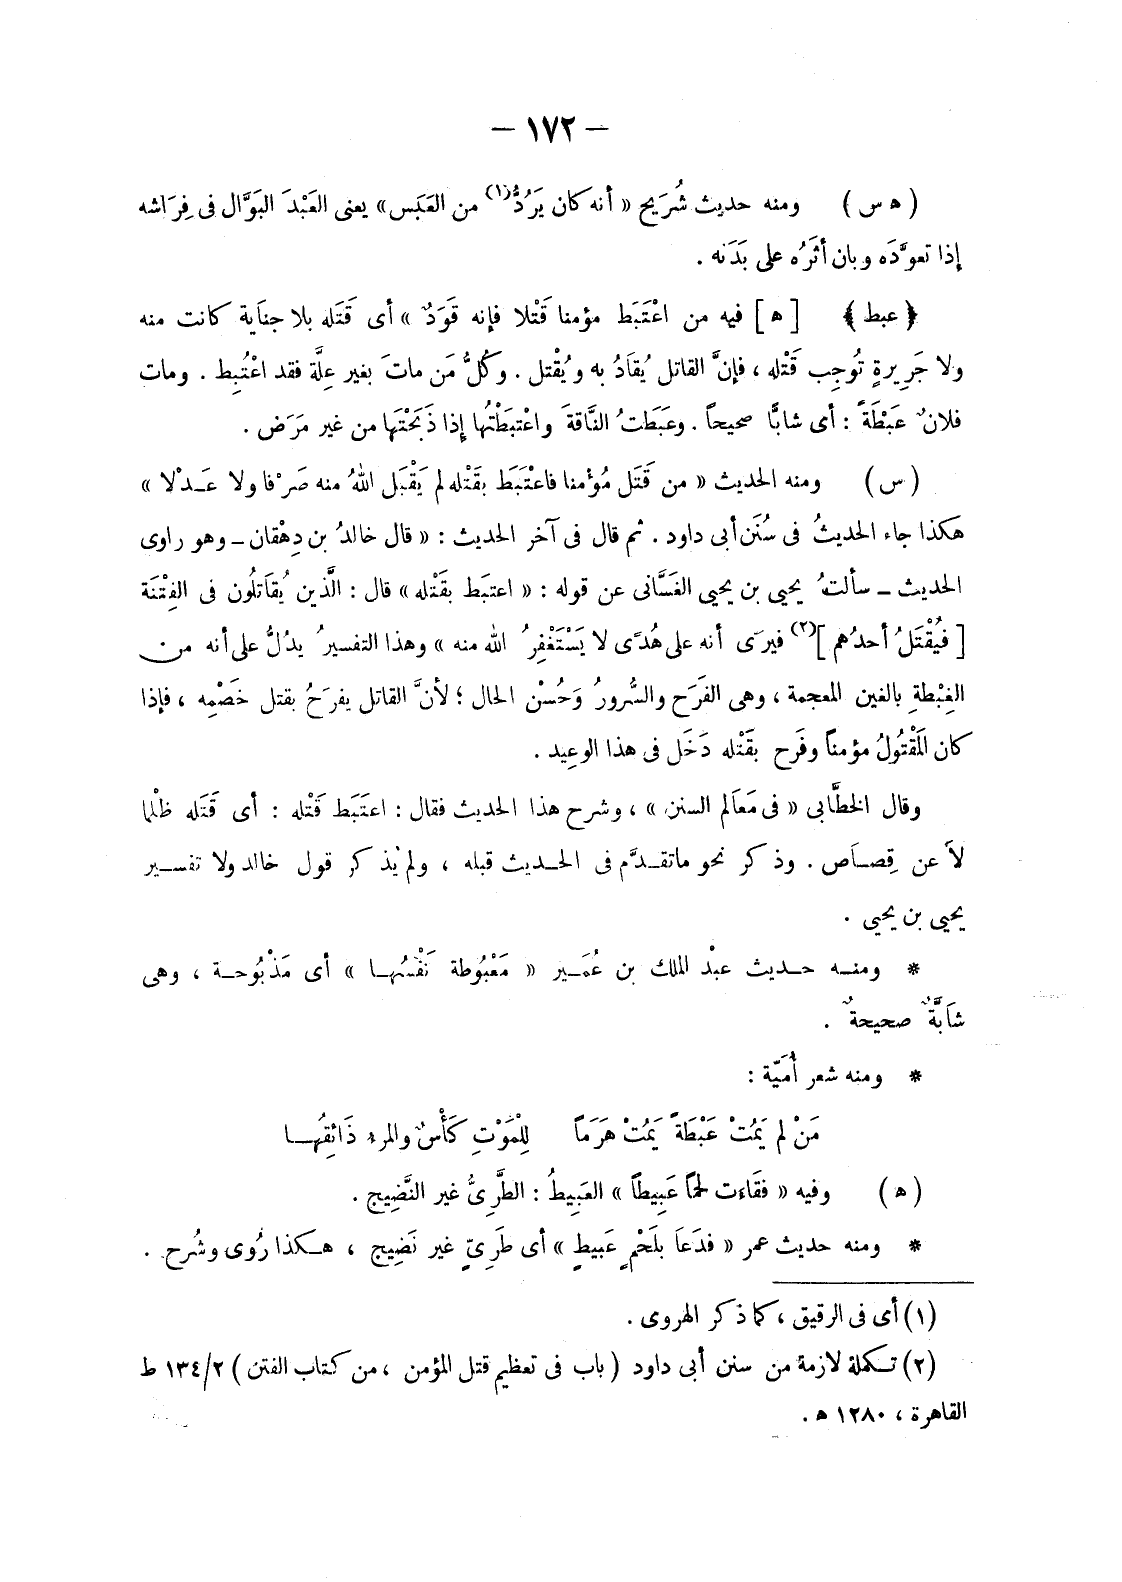 – ١٧٢ –
( ه س ) ومنه حديث شُرَيح « أنه كان يَرُدُّ(١) من العَبَس » يعنى العَبْدَ البَوَّال فى فِرَاشه
إذا تعوَّدَه وبان أثَرُه على بَدَنه .
﴿ عبط ﴾ [ ه ] فيه من اعْتَبَط مؤمنا قَتْلا فإنه قَوَدٌ » أى قَتَله بلا جنَاية كانت منه
ولا جَرِيرةٍ تُوجِب قَتْله ، فإنَّ القاتل يُقاَدُ به ويُقْتل . وكُلُّ مَن ماتَ بغير عِلَّة فقد اعْتُبِط . ومات
فلانٌ عَبْطَةً : أى شابًّا صحيحاً . وعَبَطتُ النَّاقةَ واعْتبَطْتُها إذا ذَبَحْتَها من غير مَرَض .
( س ) ومنه الحديث « من قَتَل مُؤمنا فاعْتبَط بقَتْله لم يَقْبَل اللهُ منه صَرْفا ولا عَدْلا »
هكذا جاء الحديثُ فى سُنَن أبى داود . ثم قال فى آخر الحديث : « قال خالدُ بن دِهْقان ـ وهو راوى
الحديث ـ سألتُ يحيى بن يحيى الغَسَّانى عن قوله : « اعتبَط بقَتْله » قال : الَّذين يُقاَتلُون فى الفِتْنَة
[ فيُقْتَلُ أحدُهم ](٢) فيرَى أنه على هُدًى لا يَسْتَغْفِرُ الله منه » وهذا التفسيرُ يدُلُّ على أنه من
الغِبْطةِ بالغين المعجمة ، وهى الفَرَح والسُّرورُ وَحُسْن الحال ؛ لأنَّ القاتل يفرَحُ بقتل خَصْمِه ، فإذا
كان المَقْتُولُ مؤمناً وفَرح بقَتْله دَخَل فى هذا الوعِيد .
وقال الخطَّابى « فى مَعَالم السنن » ، وشرح هذا الحديث فقال : اعتَبَط قَتْله : أى قَتَله ظلْما
لاَ عن قِصاَص . وذكر نحو ماتقدَّم فى الحديث قبله ، ولم يُذكر قول خالد ولا تفسير
يحيى بن يحيى .
* ومنه حديث عبْد الملك بن عُمَير « مَعْبُوطة نَفْسُها » أى مَذْبُوحة ، وهى
شاَبَّةٌ صحيحةٌ .
* ومنه شعر أُمَيَّة :
مَنْ لم يَمُتْ عَبْطَةً يَمُتْ هَرَماً للْمَوْتِ كَأْسٌ والمرء ذَائِقُها
( ه ) وفيه « فقَاءت لحْماً عَبِيطاً » العَبِيطُ : الطَّرِىُّ غير النَّضِيج .
* ومنه حديث عمر « فدَعَا بلَحْمٍ عَبيطٍ » أى طَرِىٍّ غير نَضِيج ، هكذا رُوى وشُرح .
(١) أى فى الرقيق ، كما ذكر الهروى .
(٢) تكملة لازمة من سنن أبى داود ( باب فى تعظيم قتل المؤمن ، من كتاب الفتن ) ١٣٤/٢ ط
القاهرة ، ١٢٨٠ ه .